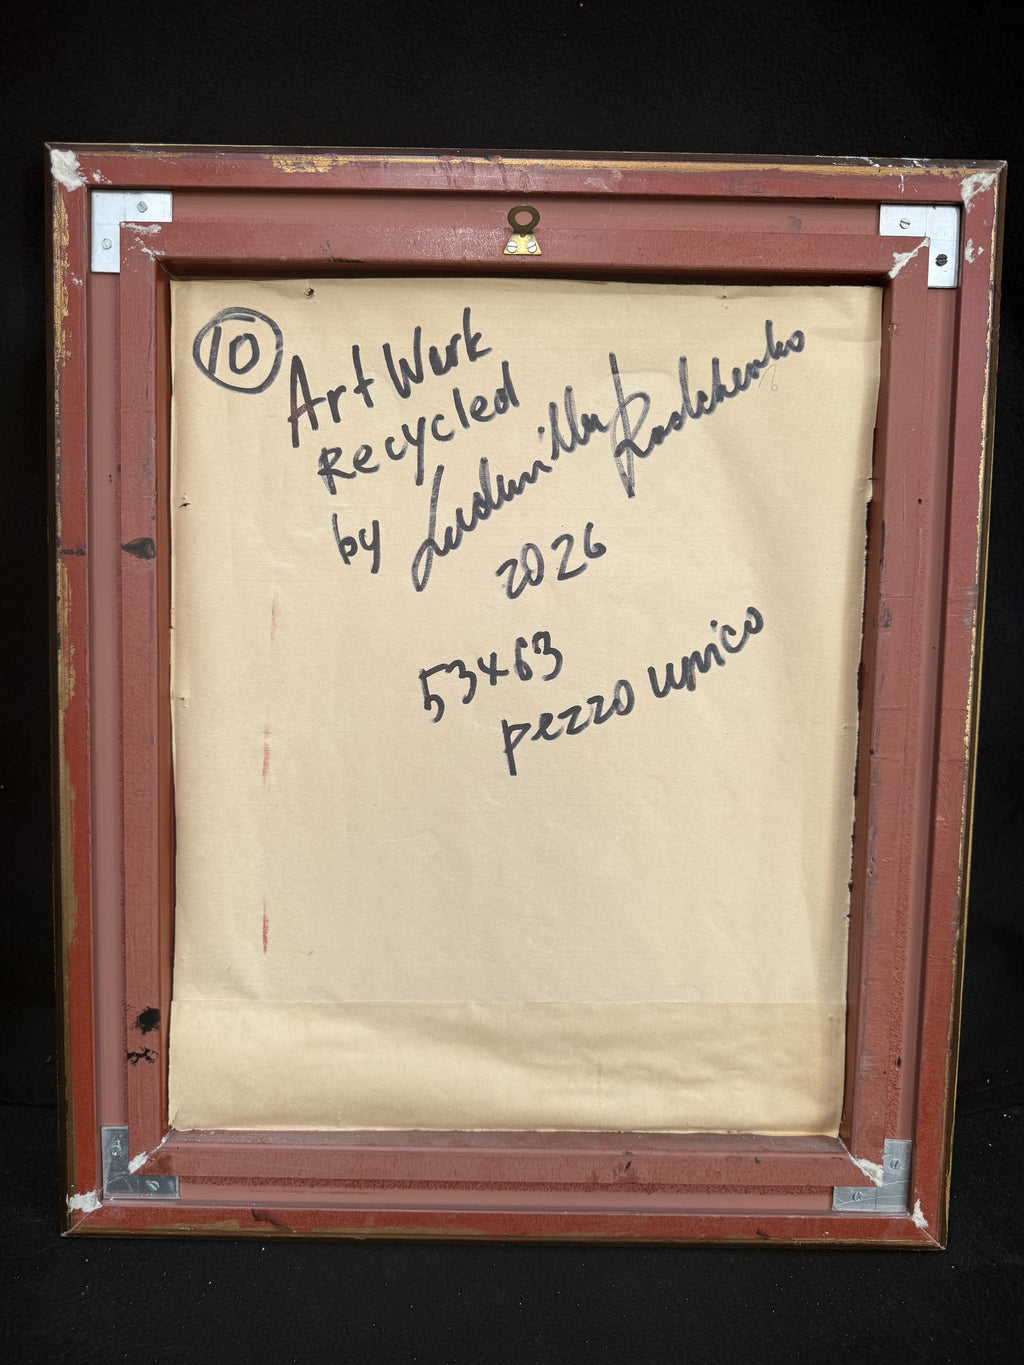 10
Art Work
Recycled
by Ludmilla Radchenko
2026
53x63
pezzo unico